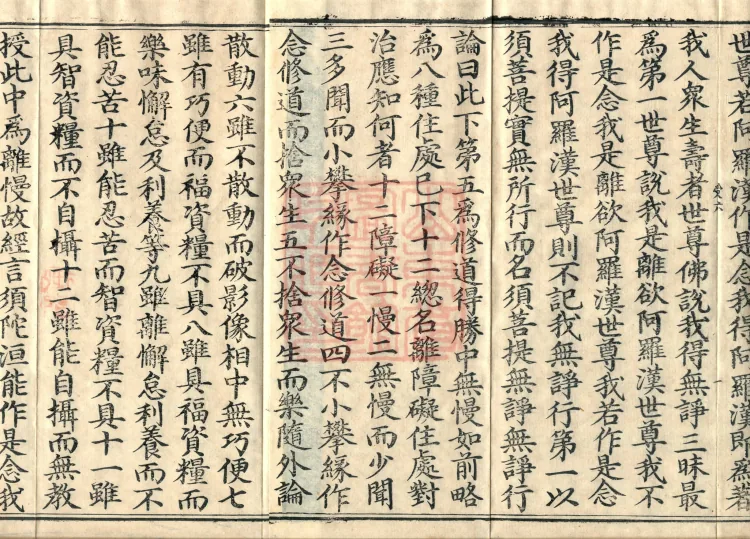 世尊若阿羅漢作是念我得阿羅漢即爲著
我人衆生壽者世尊佛說我得無諍三昧最
爲第一世尊說我是離欲阿羅漢世尊我不
作是念我是離欲阿羅漢世尊我若作是念
我得阿羅漢世尊則不記我無諍行第一以
須菩提實無所行而名須菩提無諍無諍行
論曰此下第五爲修道得勝中無慢如前略
爲八種住處已下十二總名離障礙住處對
治應知何者十二障礙一慢二無慢而少聞
三多聞而小攀緣作念修道四不小攀緣作
念修道而捨衆生五不捨衆生而樂隨外論
散動六雖不散動而破影像相中無巧便七
雖有巧便而福資糧不具八雖具福資糧而
樂味懈怠及利養等九雖離懈怠利養而不
能忍苦十雖能忍苦而智資糧不具十一雖
具智資糧而不自攝十二雖能自攝而無教
授此中爲離慢故經言須陀洹能作是念我